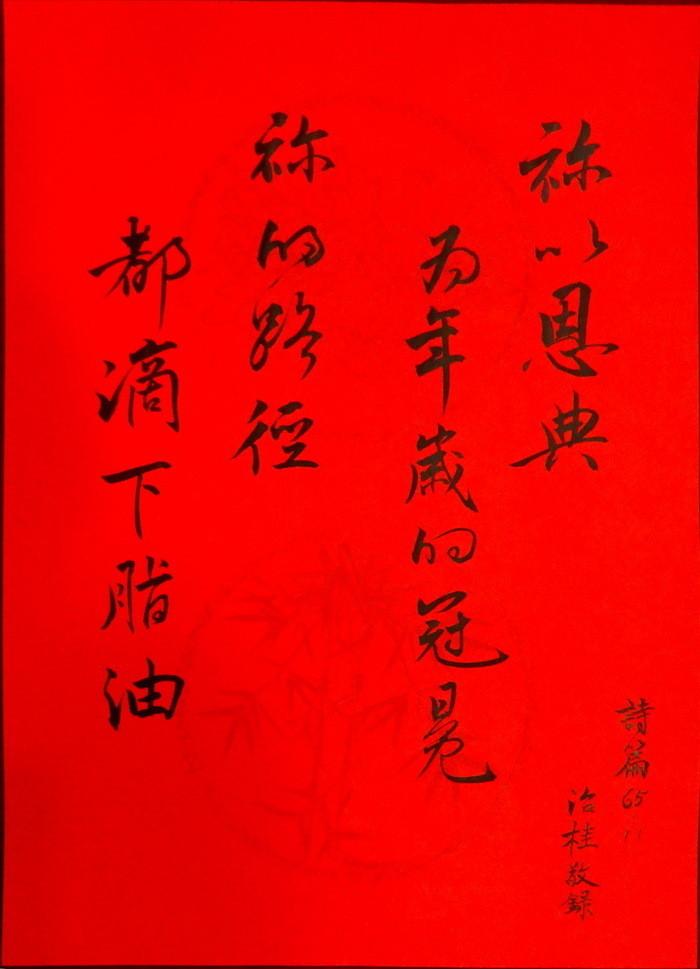 祢以恩典
為年歲的冠冕
祢的路徑
都滴下脂油
詩篇65:11
治桂敬錄